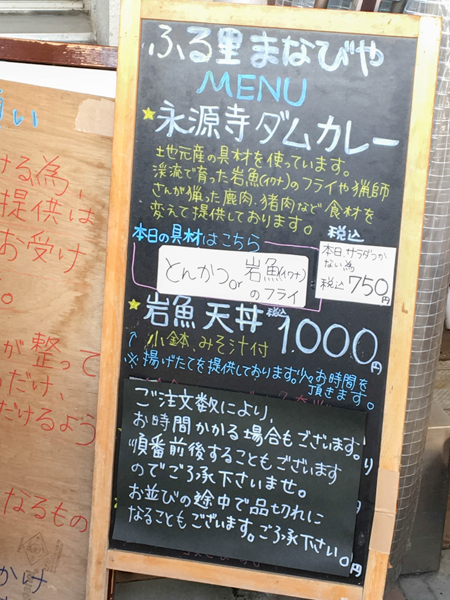 ふる里まなびや
MENU
★永源寺ダムカレー
土地元産の具材を使っています。
渓流で育った岩魚(イワナ)のフライや猟師
さんが猟った鹿肉、猪肉など食材を
変えて提供しております。
税込
本日の具材はこちら
とんかつor岩魚(イワナ)
のフライ
本日、サラダつか
ない為
税込750円
★岩魚天丼 税込1,000円
↑小鉢、みそ汁付
※揚げたてを提供しております。少々お時間を
頂きます。
ご注文数により、
お時間かかる場合もございます。
順番前後することもございます
のでご了承下さいませ。
お並びの途中で品切れに
なることもございます。ご了承下さい。
円
ける為、
提供は
お受け
。
が整って
だけ
だけるよう
なるもの
かけ